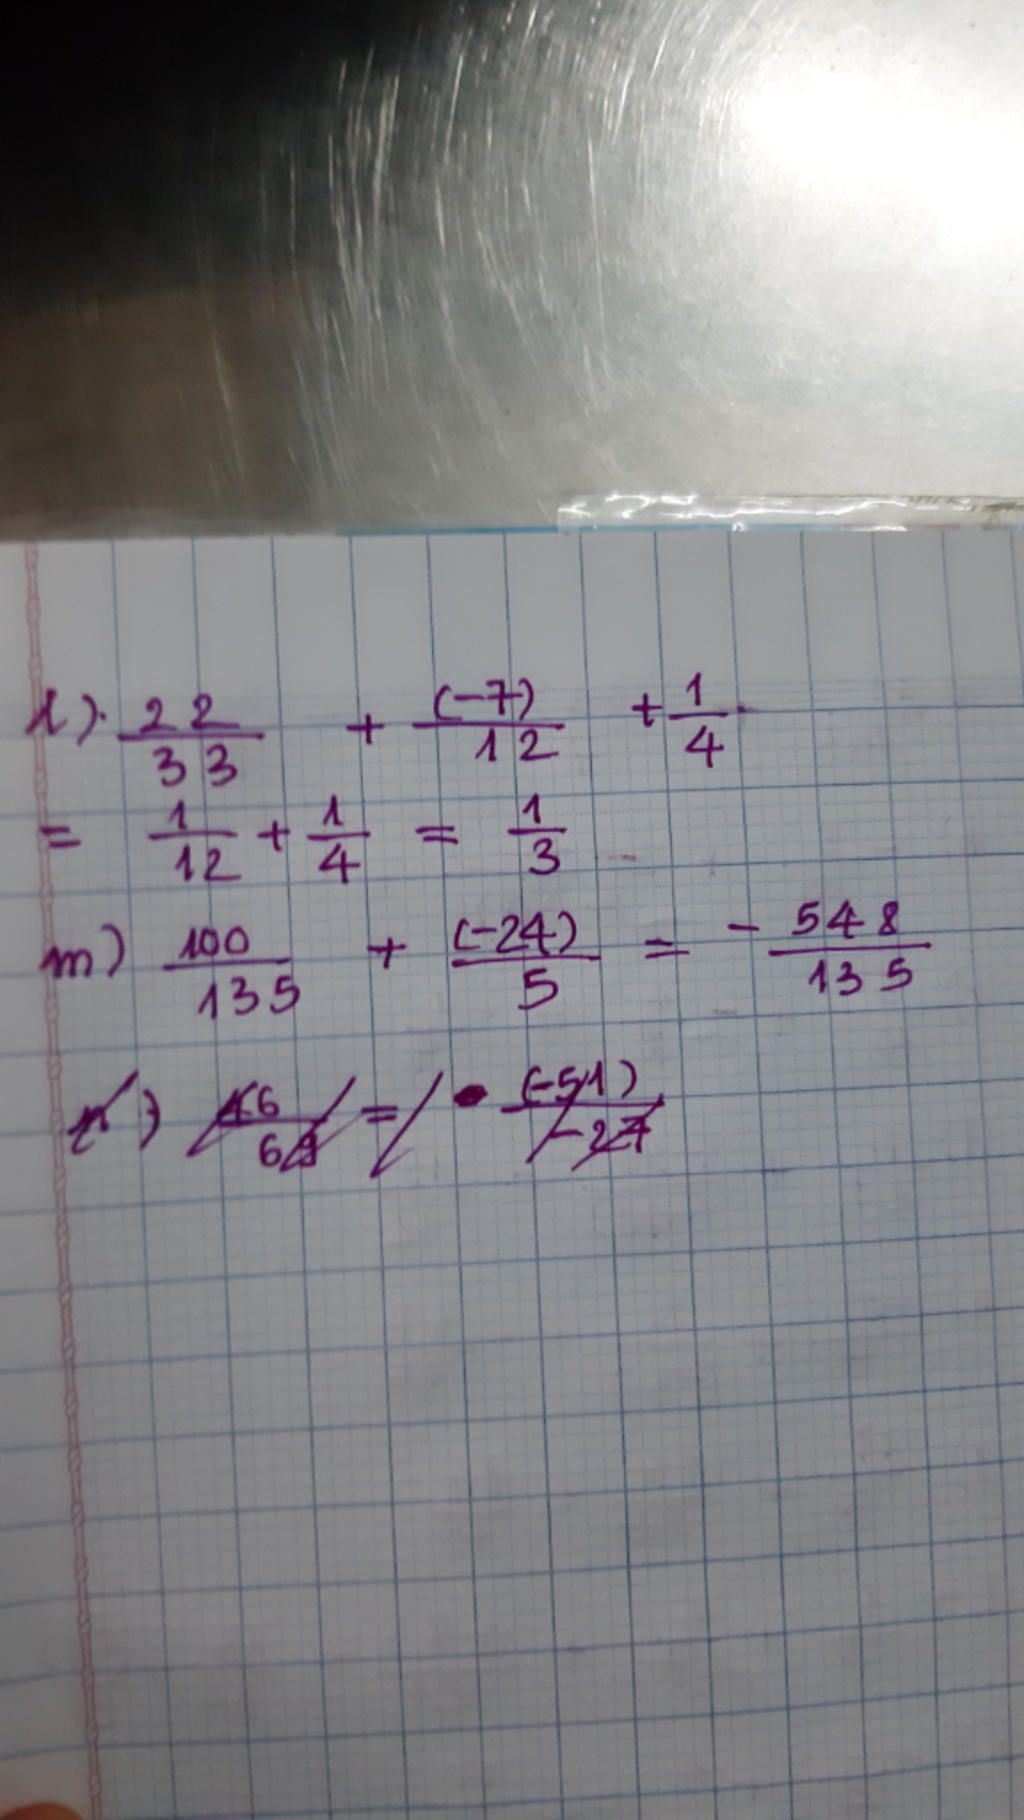 l) 22/33 + (-7)/12 + 1/4
= 1/12 + 1/4 = 1/3
m) 100/135 + (-24)/5 = - 548/135
= (-51)/-27